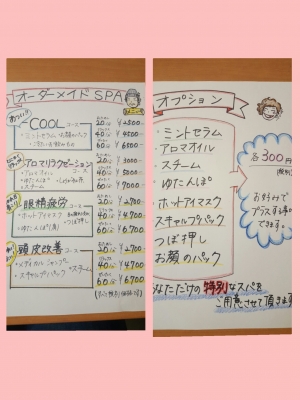 オーダーメイド SPA
COOL コース
・ミントセラム
20分 ¥2500-
40分 ¥4500-
60分 ¥6500-
アロマリラクゼーションコース
・アロマオイル
・ゆたんぽ
・スチーム
20分 ¥3000-
40分 ¥5000-
60分 ¥7000-
眼精疲労コース
・ホットアイマスク
つぼ押し
・ゆたんぽ(肩)
20分 ¥2700-
40分 ¥4700-
60分 ¥6700-
頭皮改善コース
・メディカルシャンプー
・スキャルプパック
・スチーム
20分 ¥2700-
40分 ¥4700-
60分 ¥6700-
オプション
・ミントセラム
・アロマオイル
・スチーム
・ゆたんぽ
・ホットアイマスク
・スキャルプパック
・つぼ押し
・お顔のパック
各300円
(税別)
お好みで
プラスする事が
できます。
あなただけの特別なスパを
ご用意させて頂きます